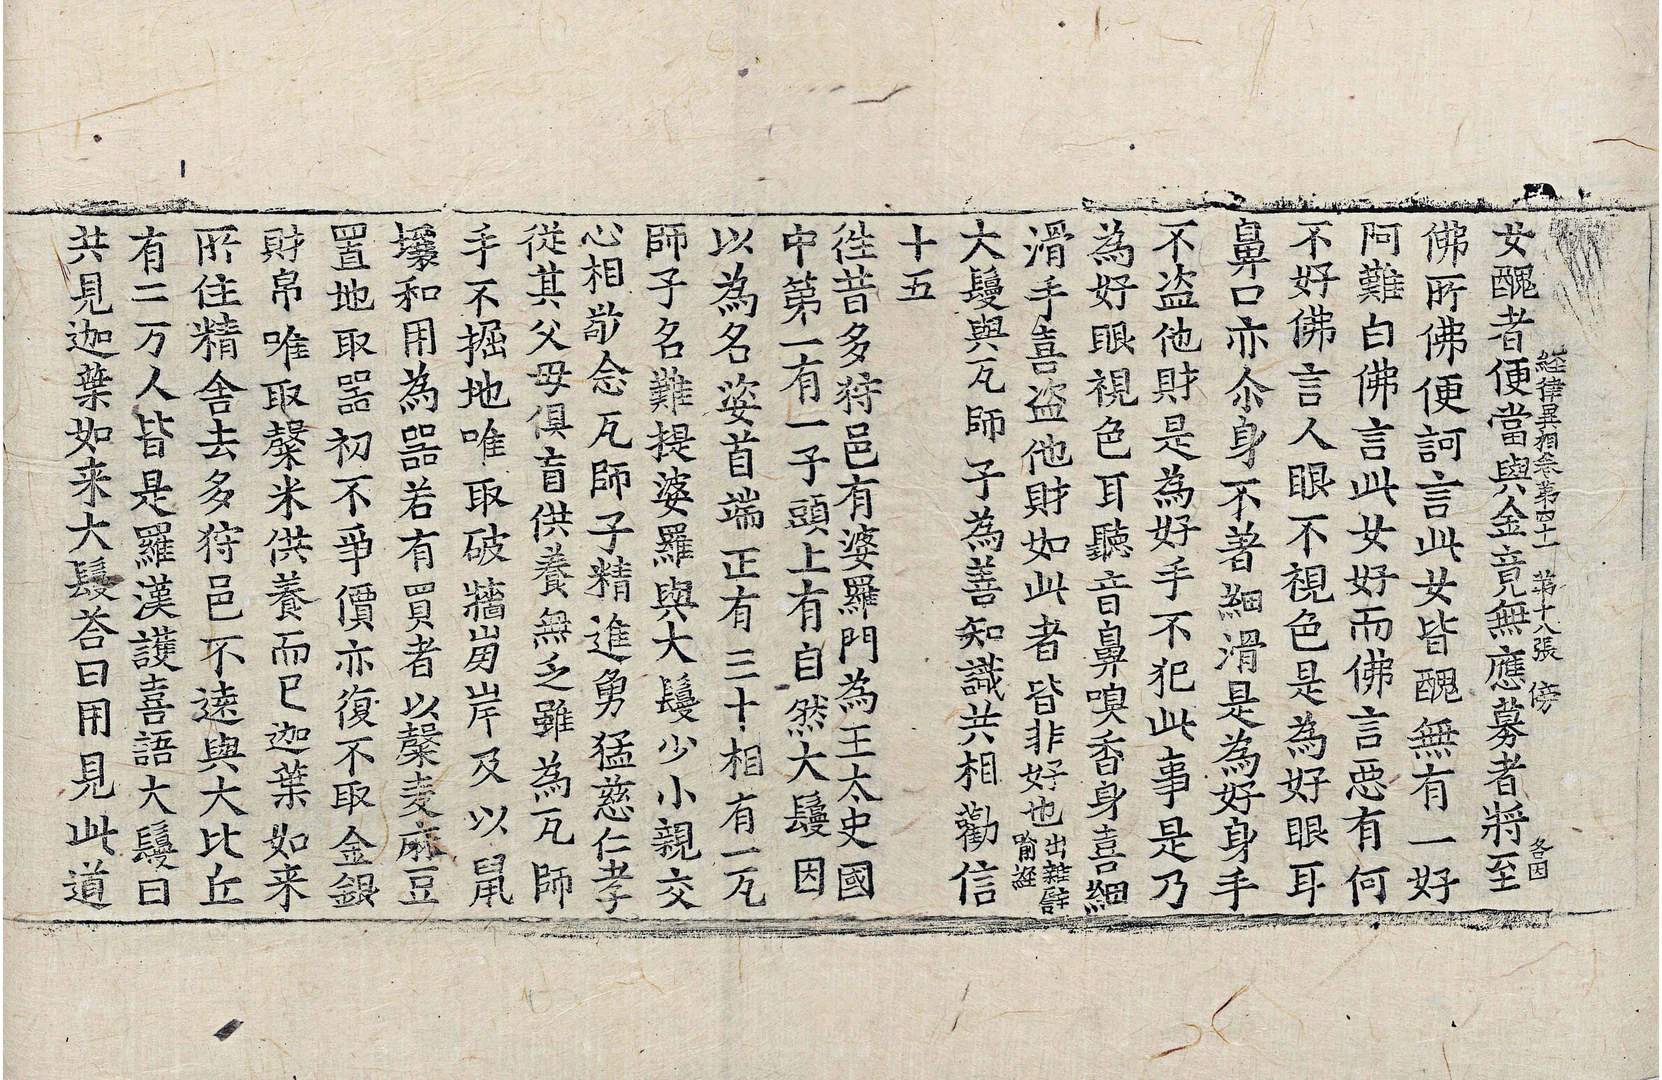 經律異相卷第四十一　第十八張　傍　各因
女醜者便當與金竟無應募者將至
佛所佛便訶言此女皆醜無有一好
阿難白佛言此女好而佛言惡有何
不好佛言人眼不視色是為好眼耳
鼻口亦尒身不著細滑是為好身手
不盜他財是為好手不犯此事是乃
為好眼視色耳聽音鼻嗅香身喜細
滑手喜盜他財如此者皆非好也出雜譬喻經
大鬘與瓦師子為善知識共相勸信
十五
徃昔多狩邑有婆羅門為王太史國
中第一有一子頭上有自然大鬘因
以為名姿首端正有三十相有一瓦
師子名難提婆羅與大鬘少小親交
心相敬念瓦師子精進勇猛慈仁孝
從其父母俱盲供養無乏雖為瓦師
手不掘地唯取破牆崩岸及以鼠
壤和用為器若有買者以䅽麦麻豆
置地取器初不爭價亦復不取金銀
財帛唯取䅽米供養而已迦葉如来
所住精舍去多狩邑不遠與大比丘
有二万人皆是羅漢護喜語大鬘曰
共見迦葉如来大鬘荅曰用見此道